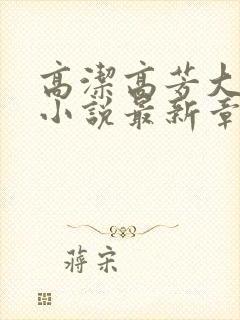 高潔高芳大
小說最新章
蔣宋